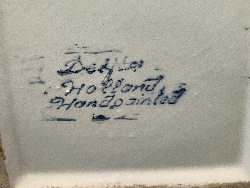 Delfts
Holland
Handpainted